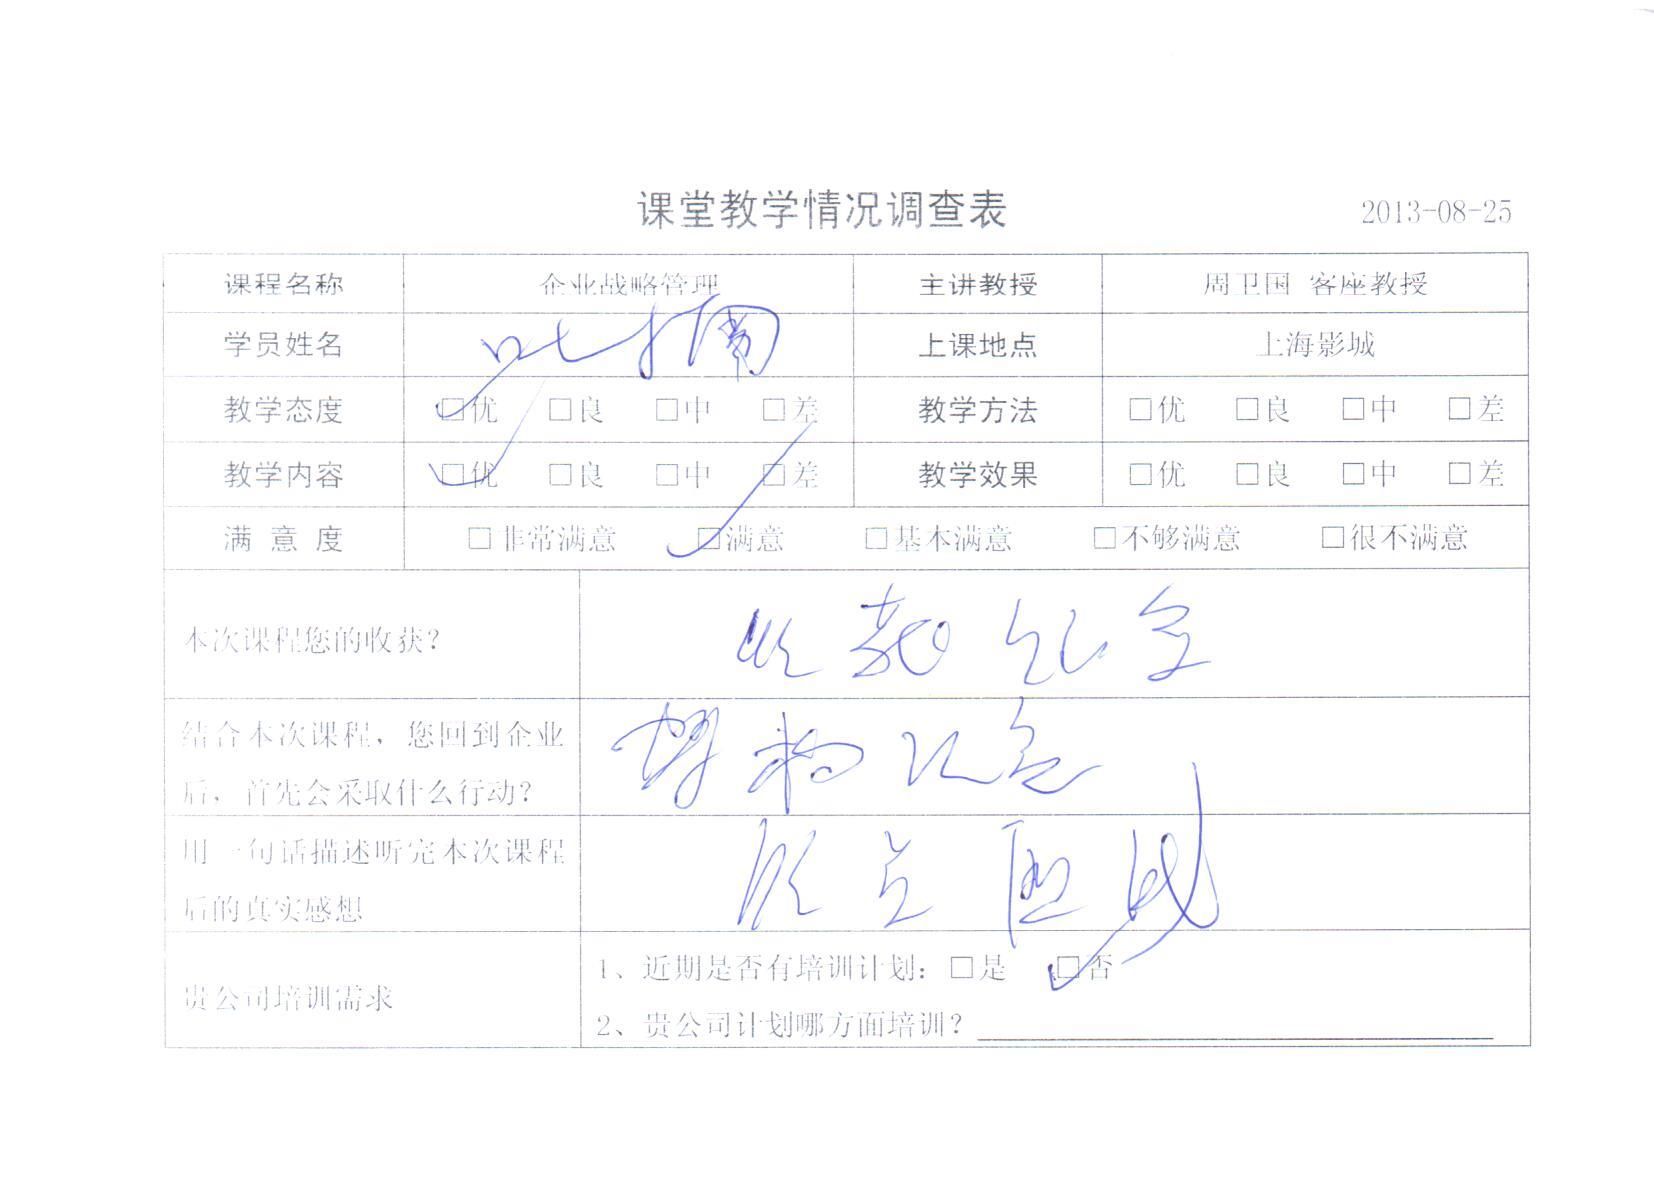 课堂教学情况调查表 2013-08-25
课程名称 企业战略管理 主讲教授 周卫国 客座教授
学员姓名 上课地点 上海影城
教学态度 □优 □良 □中 □差 教学方法 □优 □良 □中 □差
教学内容 □优 □良 □中 □差 教学效果 □优 □良 □中 □差
满意度 □非常满意 □满意 □基本满意 □不够满意 □很不满意
本次课程您的收获?
结合本次课程，您回到企业
后，首先会采取什么行动?
用一句话描述听完本次课程
后的真实感想
贵公司培训需求 1、近期是否有培训计划：□是 □否
2、贵公司计划哪方面培训?